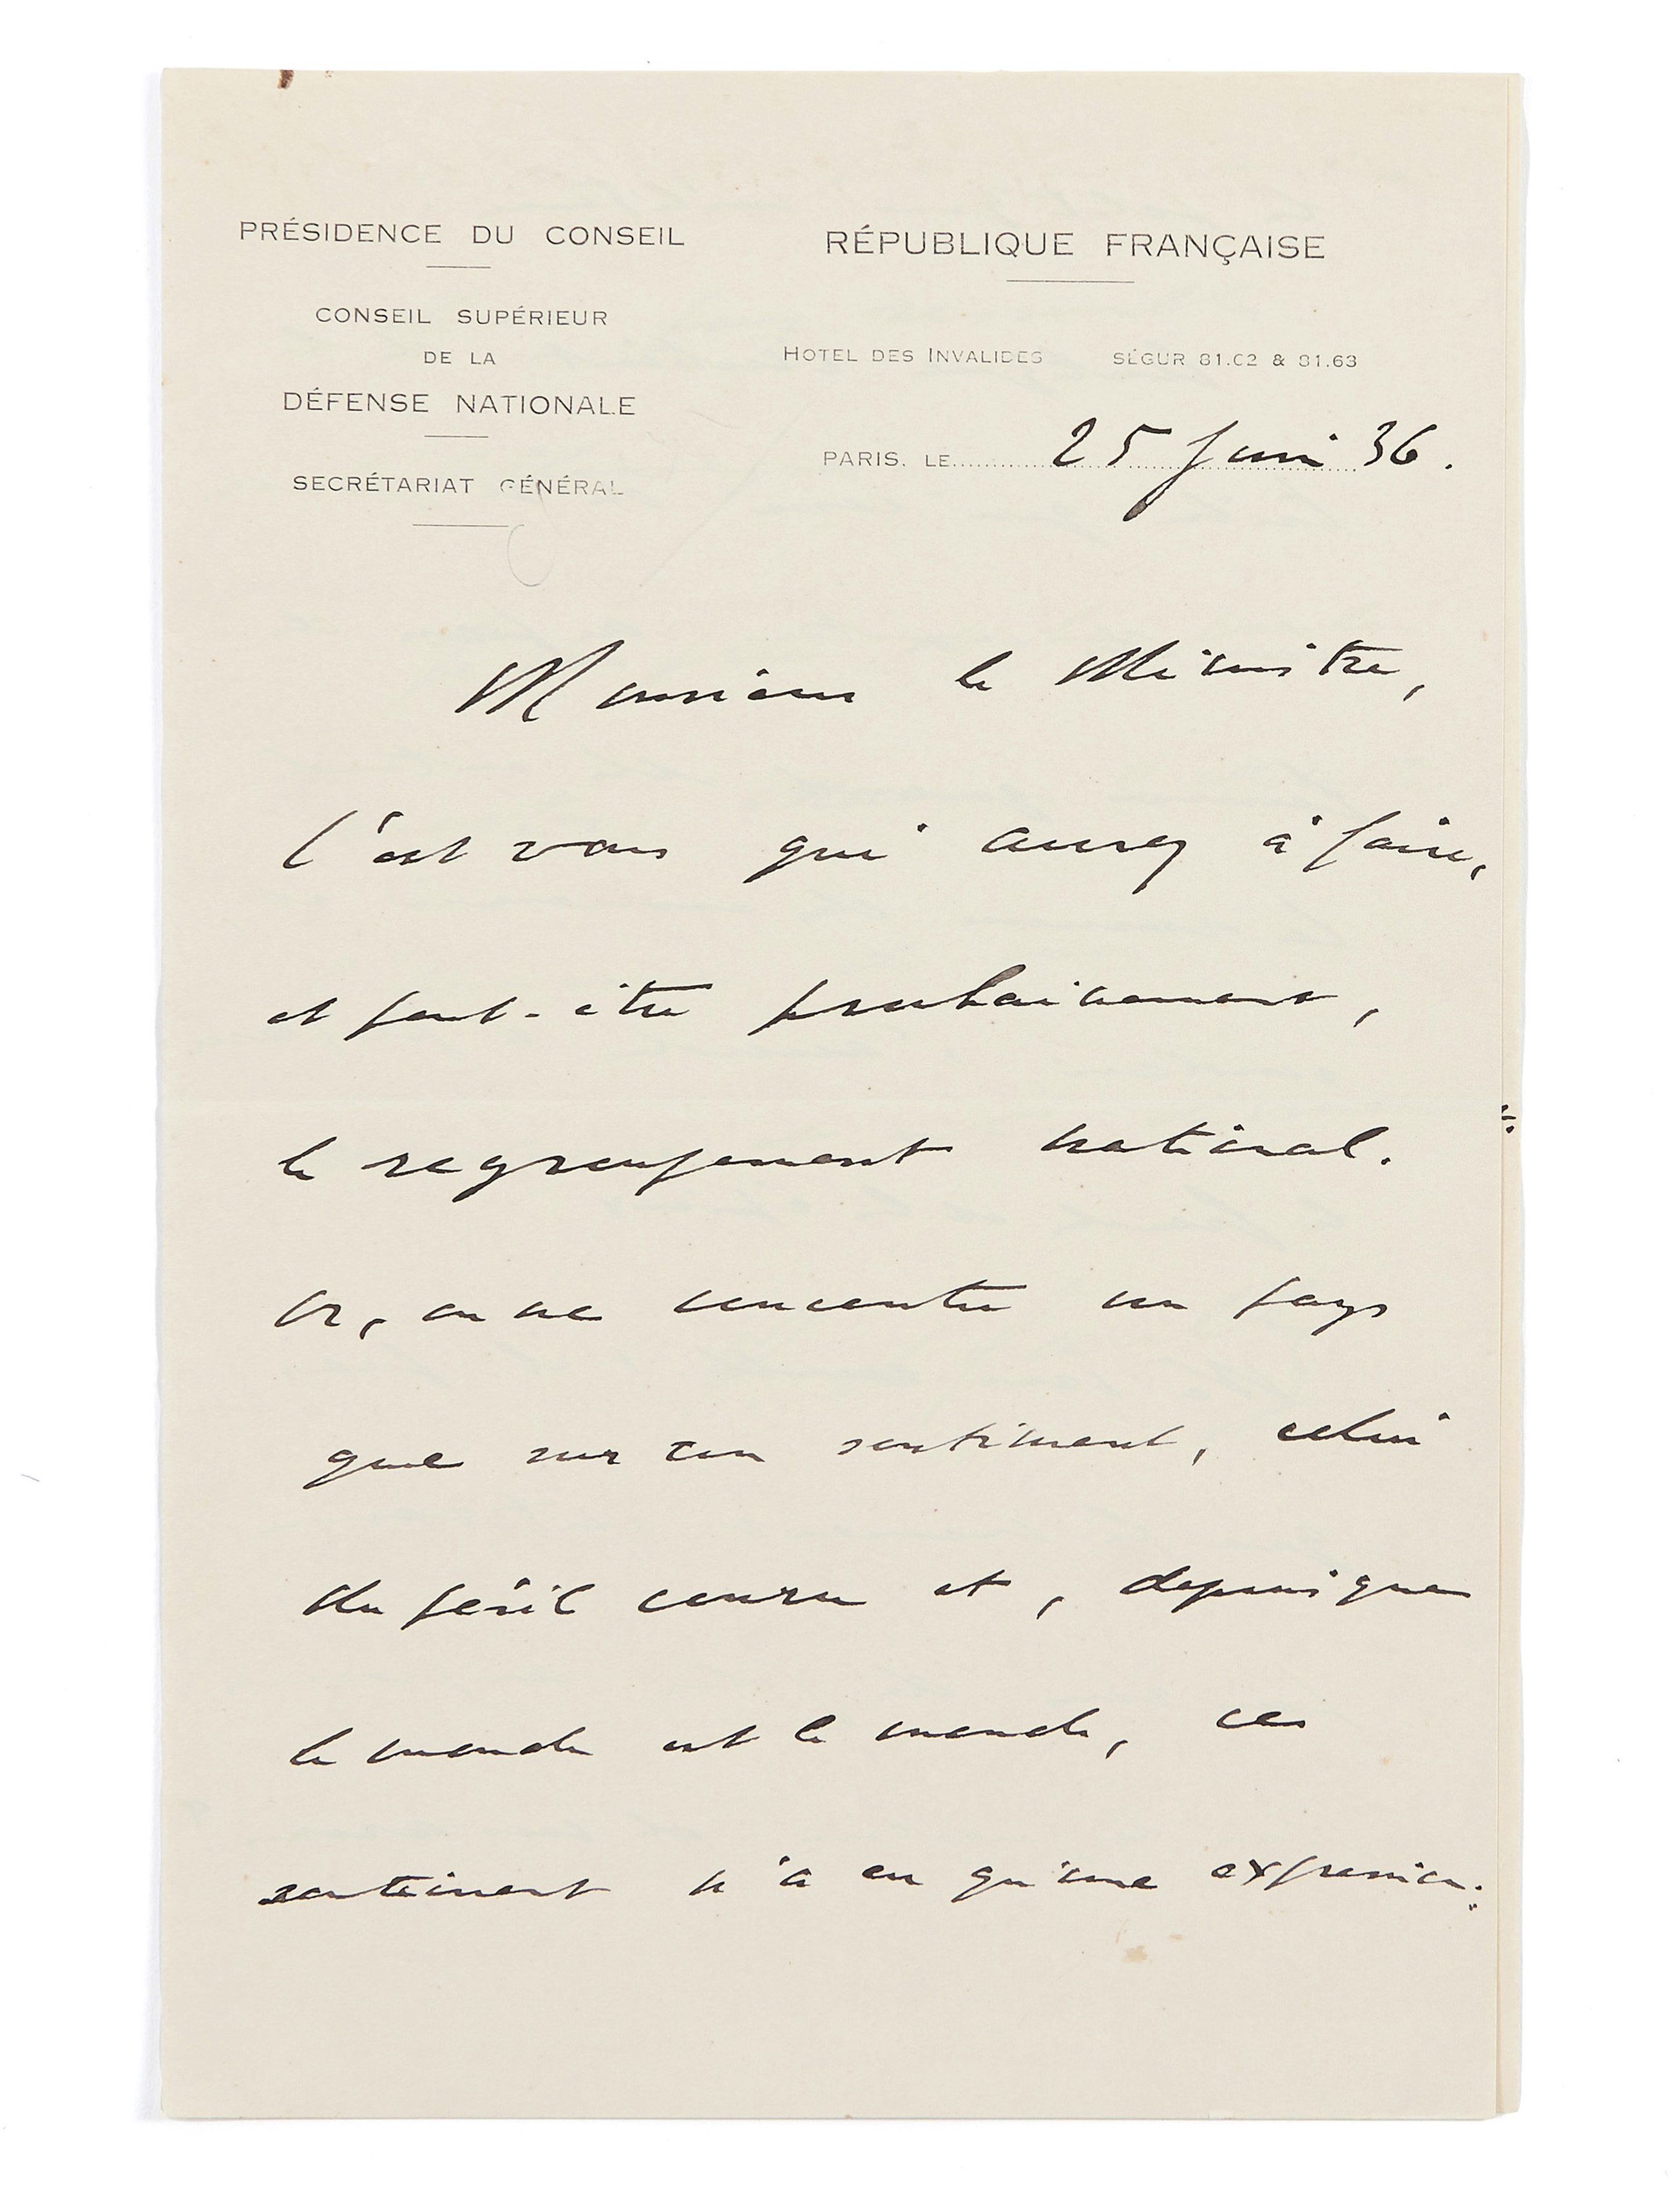 PRÉSIDENCE DU CONSEIL
CONSEIL SUPÉRIEUR
DE LA
DÉFENSE NATIONALE
SECRÉTARIAT GÉNÉRAL
RÉPUBLIQUE FRANÇAISE
HOTEL DES INVALIDES SÉGUR 81.02 & 81.63
PARIS, LE 25 Juin 36.
Monsieur le Ministre,
C'est vous qui aurez à faire,
et peut-être prochainement,
le regroupement national.
Or, on ne concentre un pays
que sur un sentiment, celui
du péril couru et, depuis que
le monde est le monde, ce
sentiment n'a eu qu'une expression: